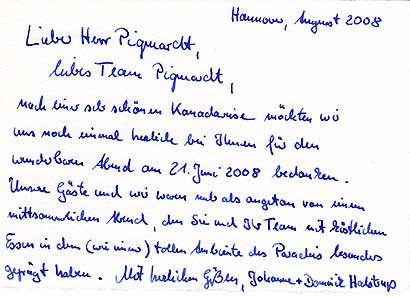 Hannover, August 2008
Lieber Herr Piqmardt,
liebes Team Piqmardt,
nach einer sehr schönen Kanadareise möchten wir
uns noch einmal herzlich bei Ihnen für den
wunderbaren Abend am 21. Juni 2008 bedanken.
Unsere Gäste und wir waren mehr als angetan von einem
mittsommerlichen Abend, den Sie und Ihr Team mit köstlichem
Essen in dem (wie immer) tollen Ambiente des Paradies besonders
geprägt haben. Mit herzlichen Grüßen, Johanne + Dominik